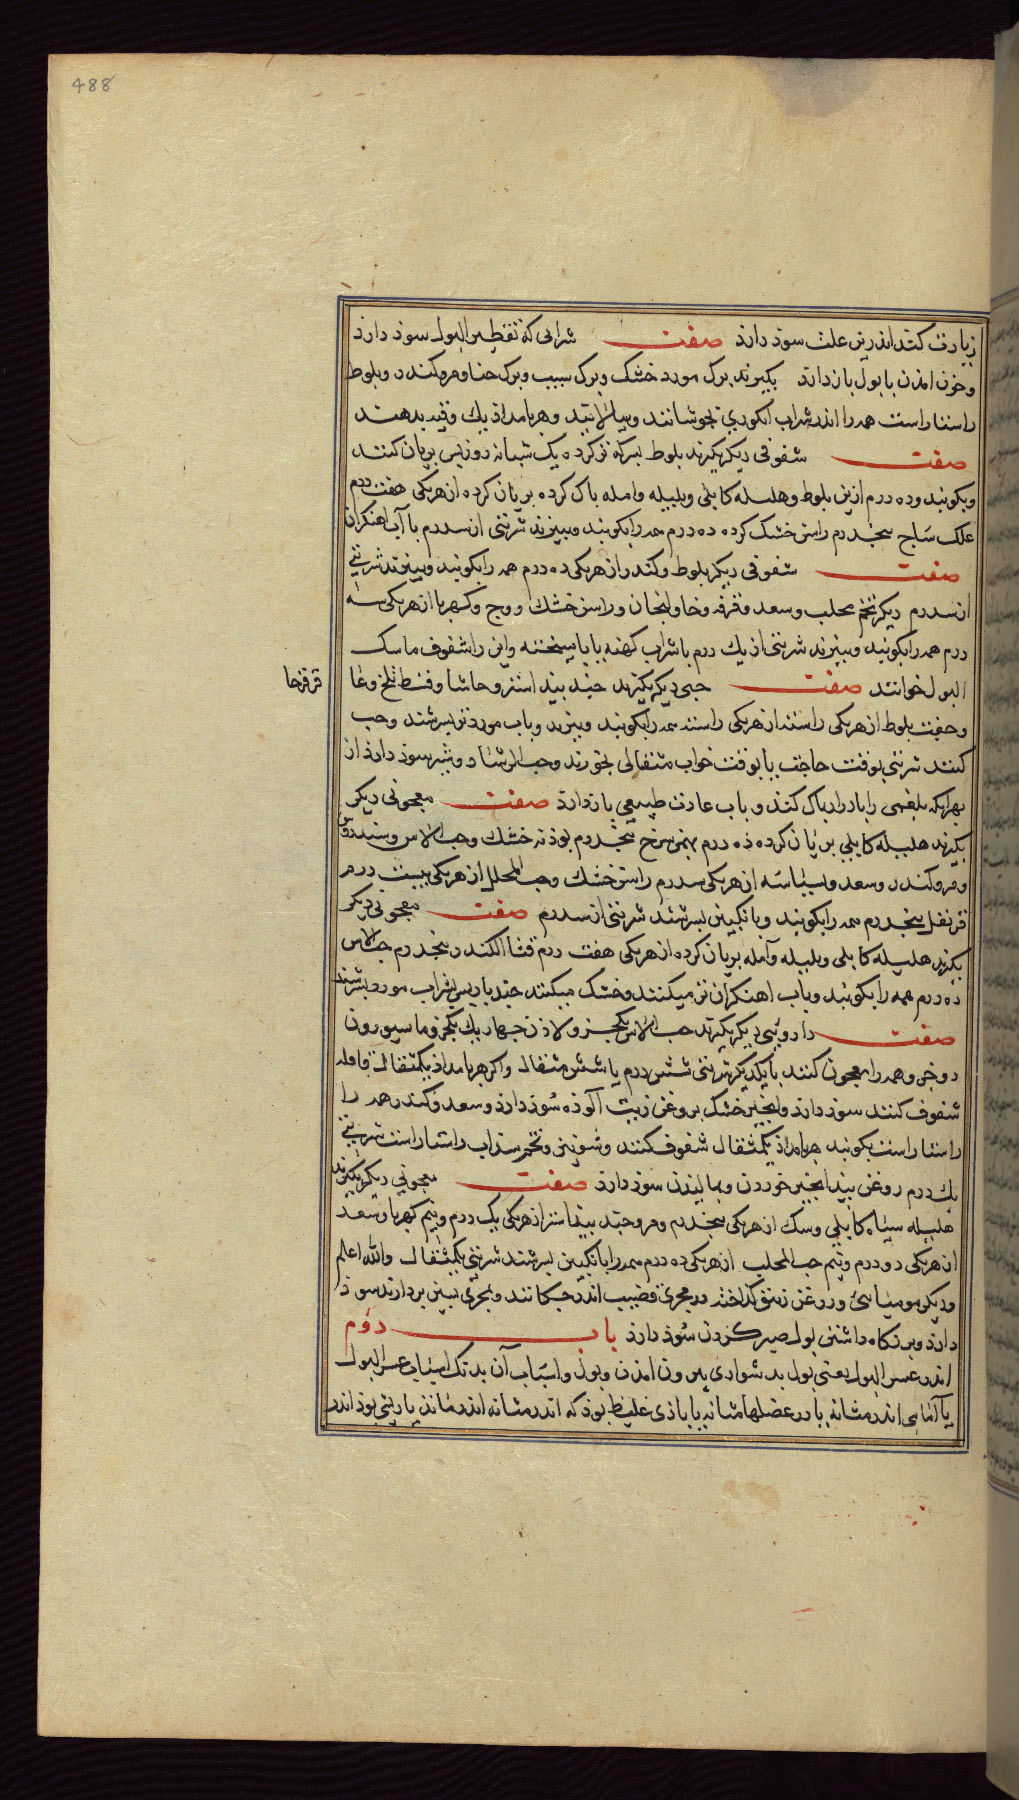 488
زیادت کند اندرین علت سوذ دارذ صفت شرابی که تقطیر البول سوذ دارذ
وخون امدن با بول باز دارذ بکیرند برک مورد خشک وبرک سیب وبرک حنا ومر وکندر وبلوط
راستا راست همه را اندر شراب انکوری بجوشانند وبپالایند وهر بامداذ یک وقیه بدهند
صفت شفوفی دیکر بکیرند بلوط بسرکه تر کرده یک شبانه روز پس بریان کنند
وبکوبند وده درم ازین بلوط وهلیله کابلی وبلیله وامله باک کرده بریان کرده از هریکی هفت درم
علک ساج پنجدرم راسن خشک کرده ده درم همه را بکوبند وببیزند شربتی از سدرم با آب اهنکران
صفت شفوفی دیکر بلوط وکندر از هریکی ده درم همه را بکوبند وببیزند شربتی
از سدرم دیکر تخم محلب وسعد وقرفه وخاولنجان وراسن خشک ووج وکهربا از هریکی سه
درم همه را بکوبند وببیزند شربتی از یک درم با شراب کهنه یا با میبخته واین را شفوف ماسک
البول خوانند صفت حبی دیکر بکیرند جند بیدستر وحاشا وقسط تلخ وعا
قرقرحا
وجفت بلوط از هریکی راستا راست همه را بکوبند وببیزند وباب مورد تر بسرشند وحب
کنند شربتی بوقت حاجت یا بوقت خواب مثقالی بخورند وحب الرشاد وشیر سوذ دارذ از
بهر انکه بلغمی را باذرار باک کند وباب عادت طبیعی باز دارذ صفت معجونی دیکر
بکیرند هلیله کابلی بریان کرده ده درم بهمن سرخ پنجدرم بوذنه خشک وحب الاس وسندروس
ومر وکندر وسعد وبسباسه از هریکی سدرم راسن خشک وحب المحلب از هریکی بیست درم
قرنفل پنجدرم همه را بکوبند وبانکبین بسرشند شربتی از سدرم صفت معجونی دیکر
بکیرند هلیله کابلی وبلیله وآمله بریان کرده از هریکی هفت درم قشا الکندر پنجدرم حب الاس
ده درم همه را بکوبند وباب اهنکران تر میکنند وخشک میکنند جند بار پس بشراب مورد بسرشند
صفت داروئی دیکر بکیرند حب الاس یکجزو لاذن جهاریک یکجزو ما سپورون
دوجزو همه را معجون کنند بایکدیکر شربتی شش درم یا شش مثقال واکر هربامداذ یکمثقال قاقله
شفوف کنند سوذ دارذ وانجیر خشک بروغن زیت آلوذه سوذ دارذ وسعد وکندر همه را
راستا راست بکوبند هربامداذ یکمثقال شفوف کنند وشونیز وتخم سذاب راستا راست شربتی
یک درم روغن بیدانجیر خوردن وبمالیذن سوذ دارذ صفت معجونی دیکر بکیرند
هلیله سیاه کابلی وسک از هریکی پنجدرم ومر وجند بیدستر از هریکی یک درم ونیم کهربا وسعد
از هریکی دو درم ونیم حب المحلب از هریکی ده درم همه را بانکبین بسرشند شربتی یکمثقال والله اعلم
ودیکر مومیائی وروغن زنبق کداخته در مجری قضیب اندر جکانند وبجری بینین بردارند سوذ
دارذ وبرنکاه داشتن بول صبر کردن سوذ دارذ باب دوم
اندر عسر البول یعنی بول بدشواری بیرون امدن وبول واسباب آن بدانک اسباب عسر البول
یا آماسی اندر مثانه یا در عضلها مثانه یا باذی غلیظ بوذ که اندر مثانه اندر ماند یا ریشی بوذ اندر